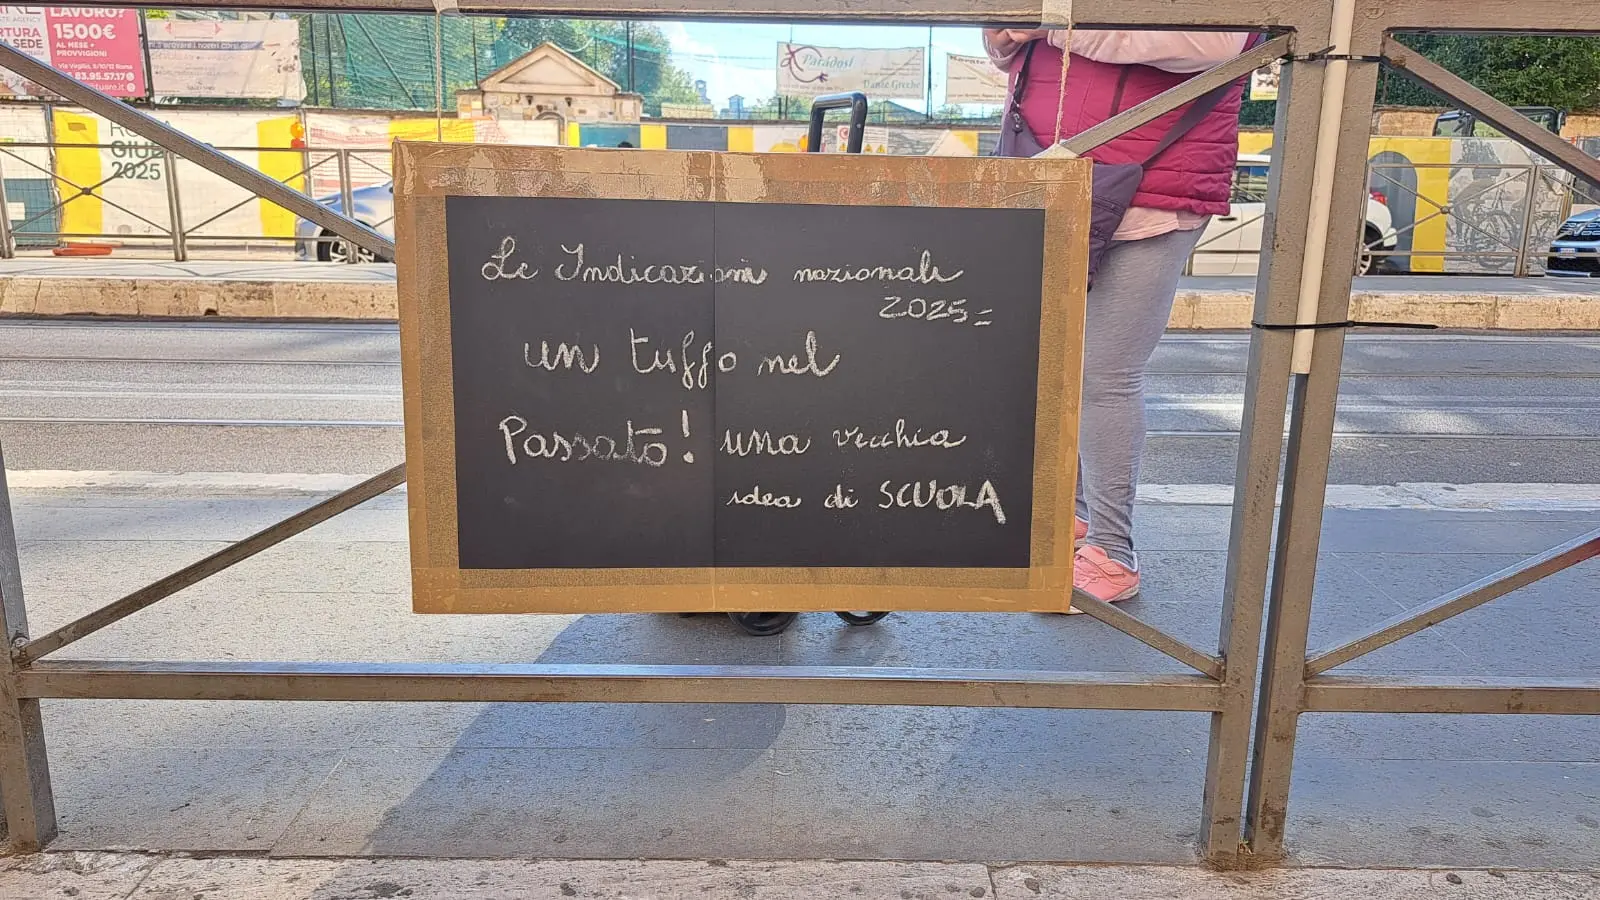 LAVORO?
1500€
AL MESE +
PROVVIGIONI
Via Virgilio, 8/10/12 Roma
83.95.57.17
Paradosi
Danze Greche
Karate
2025
Le Indicazioni nazionali
2025=
un tuffo nel
Passato! una vecchia
idea di SCUOLA